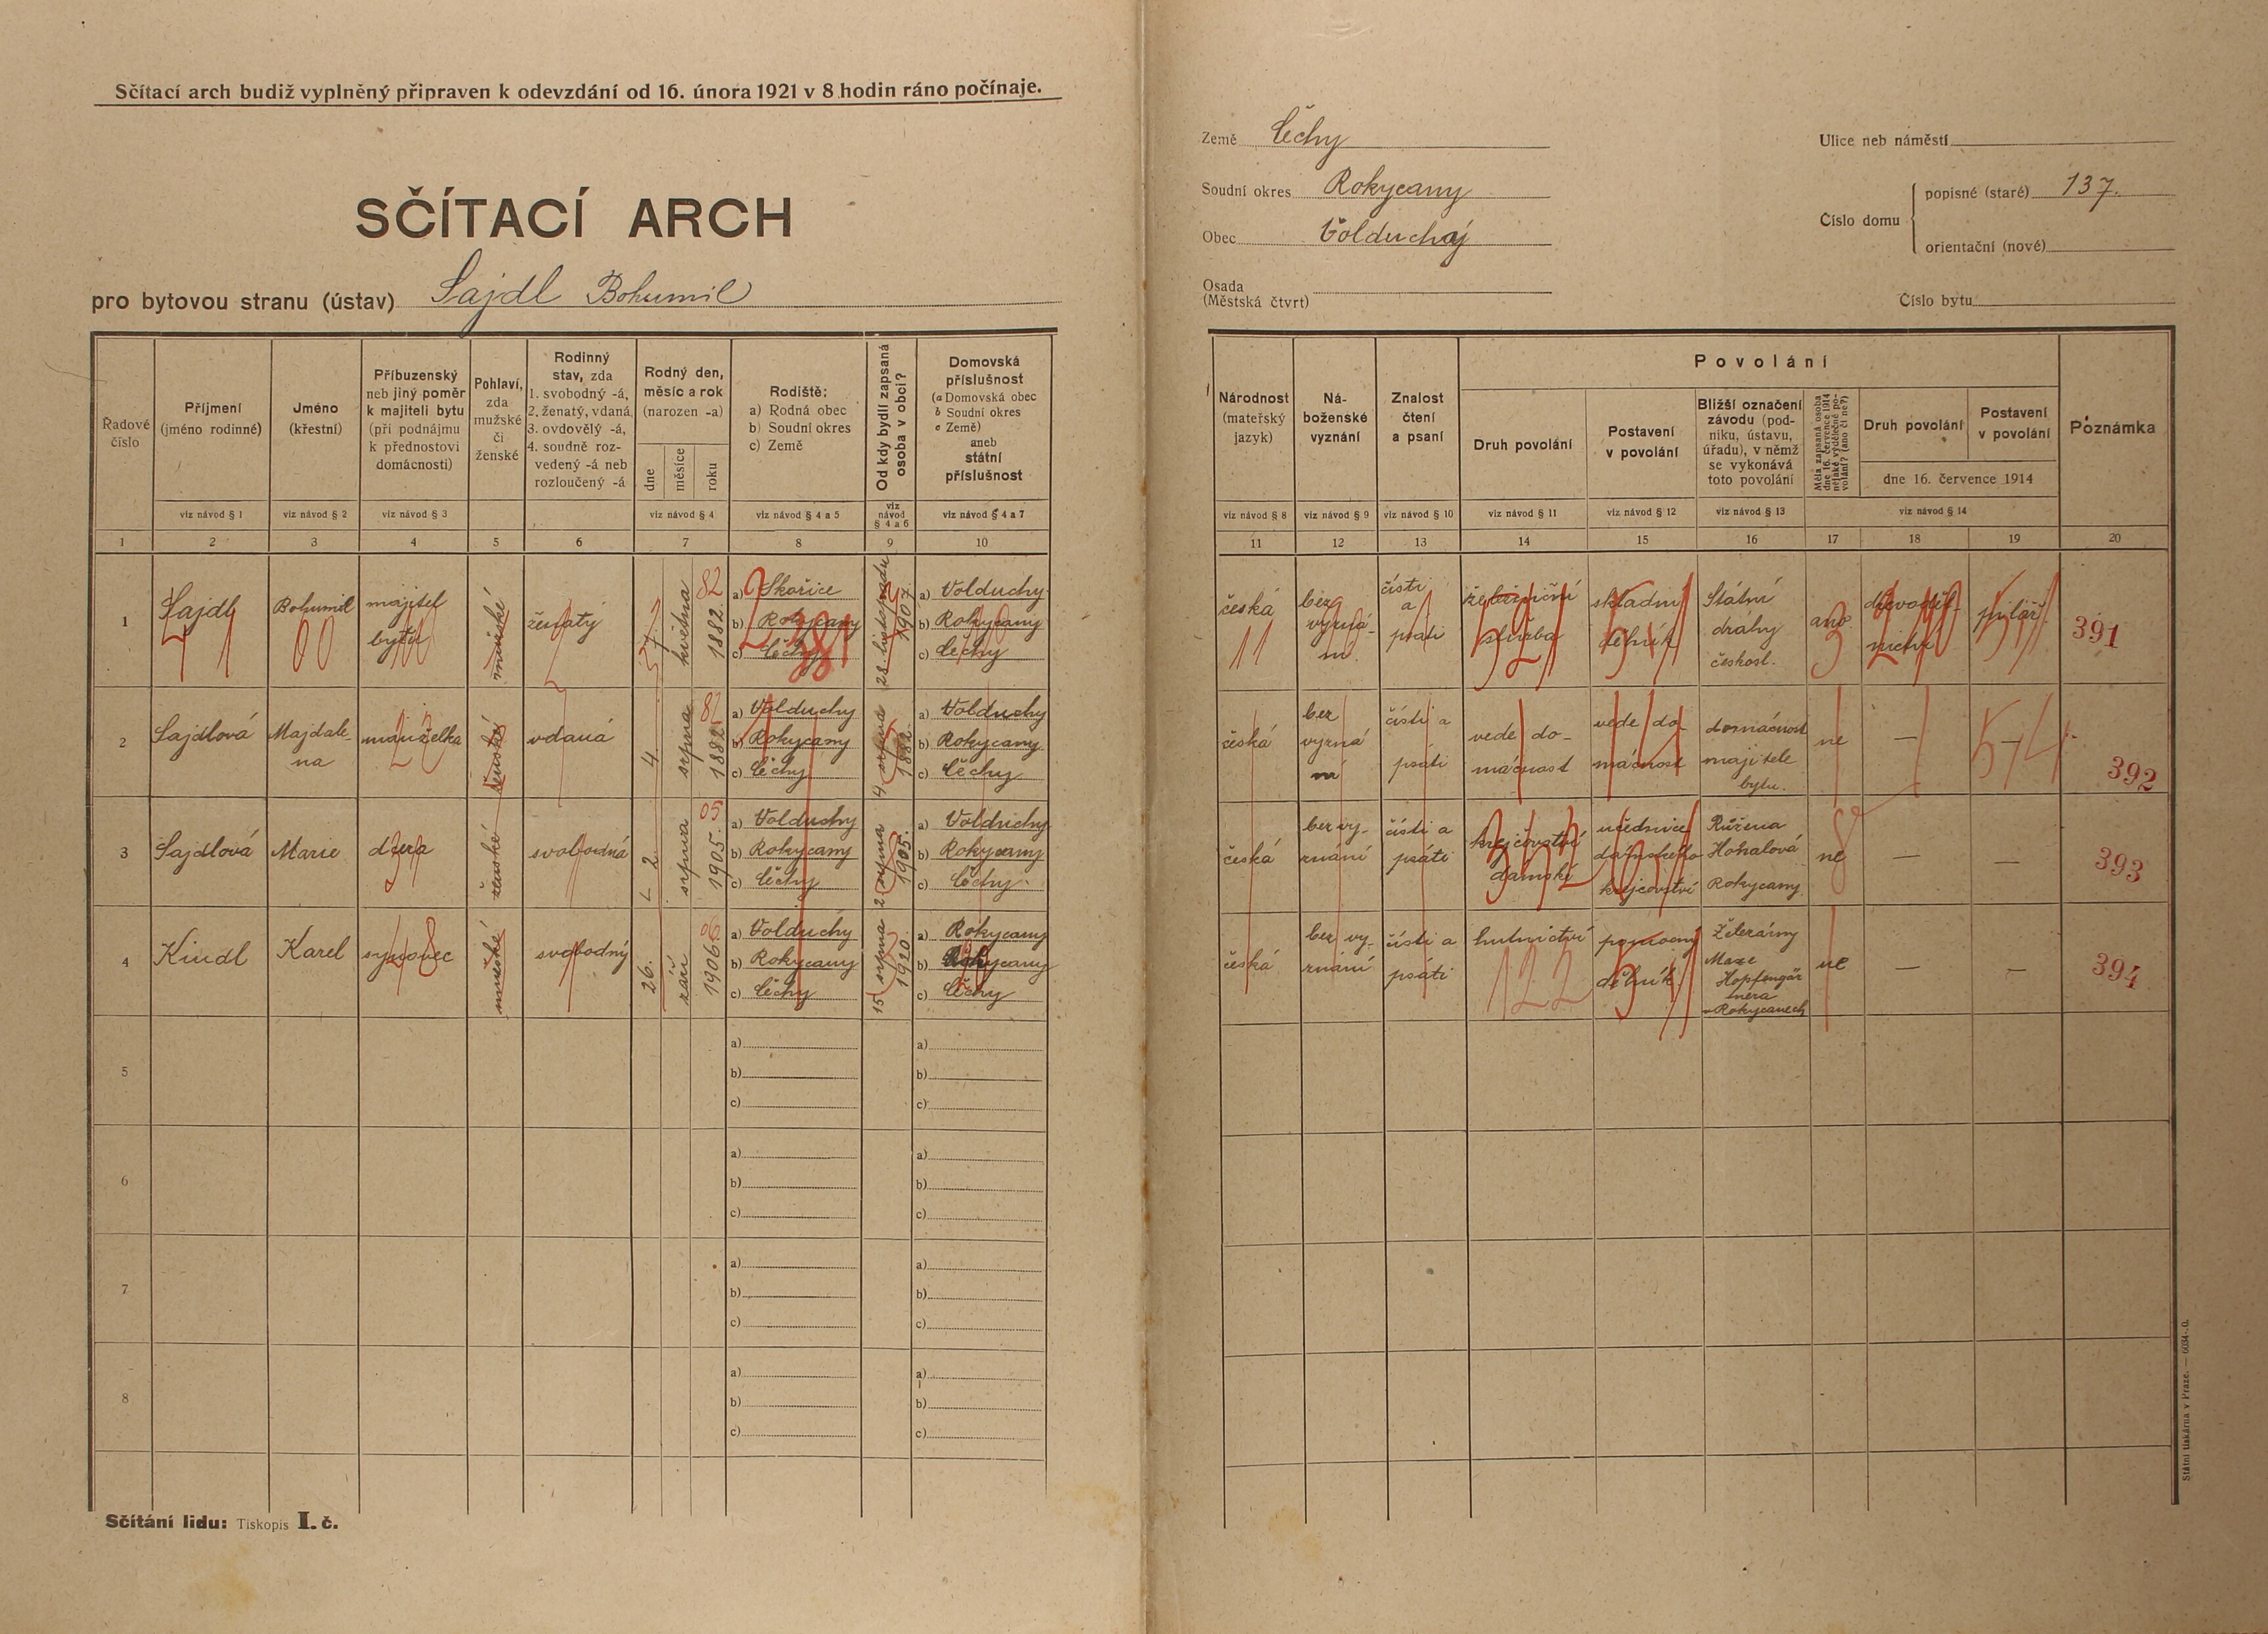 Sčítací arch budiž vyplněný připraven k odevzdání od 16. února 1921 v 8 hodin ráno počínaje.
SČÍTACÍ ARCH
pro bytovou stranu (ústav) Sajdl Bohumil
Země Čechy
Soudní okres Rokycany
Obec Volduchy
Osada
(Městská čtvrt)
Ulice neb náměstí
Číslo domu
popisné (staré) 137.
orientační (nové)
Číslo bytu
Řadové
číslo
Příjmení
(jméno rodinné)
Jméno
(křestní)
Příbuzenský
neb jiný poměr
k majiteli bytu
(při podnájmu
k přednostovi
domácnosti)
Pohlaví,
zda
mužské
či
ženské
Rodinný
stav, zda
1. svobodný -á,
2. ženatý, vdaná,
3. ovdovělý -á,
4. soudně roz-
vedený -á neb
rozloučený -á
Rodný den,
měsíc a rok
(narozen -a)
dne
měsíce
roku
Rodiště:
a) Rodná obec
b) Soudní okres
c) Země
Od kdy bydlí zapsaná
osoba v obci?
Domovská
příslušnost
(a Domovská obec
b Soudní okres
c Země)
aneb
státní
příslušnost
Národnost
(mateřský
jazyk)
Ná-
boženské
vyznání
Znalost
čtení
a psaní
Povolání
Druh povolání
Postavení
v povolání
Bližší označení
závodu (pod-
niku, ústavu,
úřadu), v němž
se vykonává
toto povolání
Měla zapsaná osoba
dne 16. července 1914
nějaké výdělečné po-
volání? (ano či ne?)
Druh povolání
Postavení
v povolání
dne 16. července 1914
Poznámka
viz návod § 1
viz návod § 2
viz návod § 3
viz návod § 4
viz návod § 4 a 5
viz
návod
§ 4 a 6
viz návod § 4 a 7
viz návod § 8
viz návod § 9
viz návod § 10
viz návod § 11
viz návod § 12
viz návod § 13
viz návod § 14
1 2 3 4 5 6 7 8 9 10 11 12 13 14 15 16 17 18 19 20
1
Sajdl
Bohumil
majitel
bytu
mužské
ženatý
května
1882
82
a) Skořice
b) Rokycany
c) Čechy
28 listopadu
1907
a) Volduchy
b) Rokycany
c) Čechy
česká
11
bez
vyzná-
ní
čísti
a
psáti
železniční
služba
skladní
dělník
Státní
dráhy
českosl.
ano
3
dřevoděl-
nictví
pilař
391
2
Sajdlová
Majdale-
na
manželka
ženské
vdaná
4
srpna
1882
82
a) Volduchy
b) Rokycany
c) Čechy
4 srpna
1882
a) Volduchy
b) Rokycany
c) Čechy
česká
bez
vyzná
ní
čísti a
psáti
vede do-
mácnost
vede do-
mácnost
domácnost
majitele
bytu.
ne
—
574
392
3
Sajdlová
Marie
dcera
ženské
svobodná
2
srpna
1905
05
a) Volduchy
b) Rokycany
c) Čechy
2 srpna
1905.
a) Volduchy
b) Rokycany
c) Čechy
česká
bez vy-
znání
čísti a
psáti
krejčovství
dámské
učednice
dámského
krejčovství
Růžena
Hohalová
Rokycany.
ne
—
—
393
4
Kindl
Karel
synovec
mužské
svobodný
26.
září
1906
06
a) Volduchy
b) Rokycany
c) Čechy
15 srpna
1920.
a) Rokycany
b) Rokycany
c) Čechy
česká
bez vy-
znání
čísti a
psáti
hutnictví
122
pomocný
dělník
Železárny
Maxe
Hopfengär
tnera
v Rokycanech
ne
—
—
394
5
a)
b)
c)
a)
b)
c)
6
a)
b)
c)
a)
b)
c)
7
a)
b)
c)
a)
b)
c)
8
a)
b)
c)
a)
b)
c)
Sčítání lidu: Tiskopis I. č.
Státní tiskárna v Praze. — 6034-0.